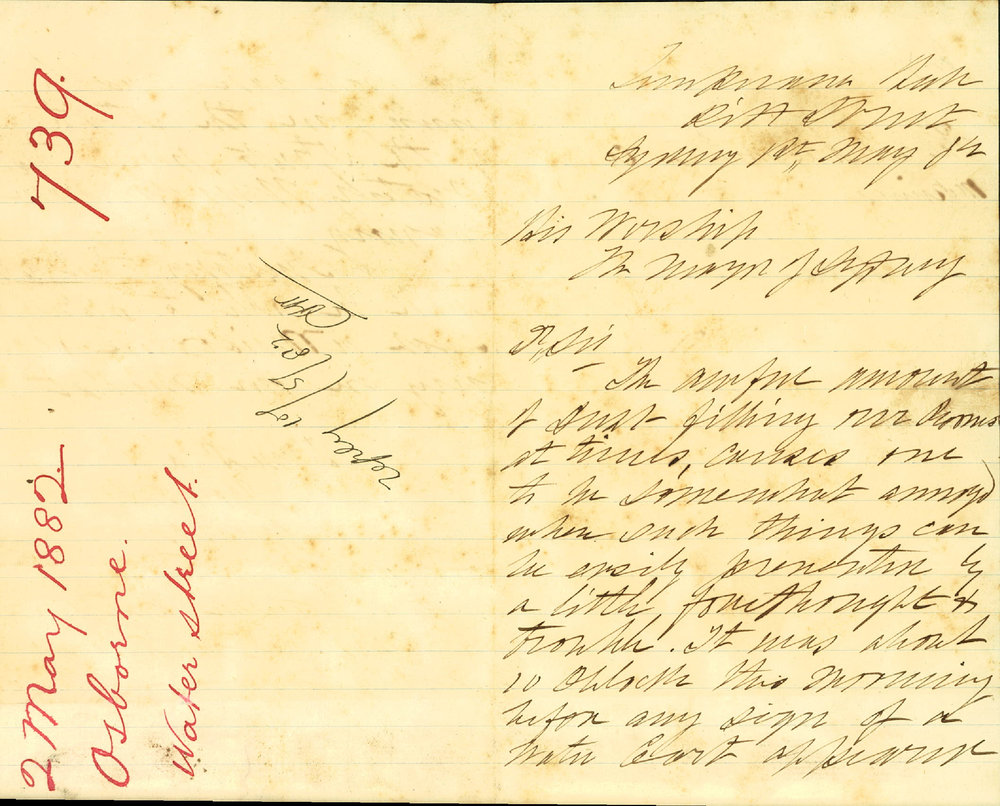 739.
2 May 1882.
Osborne.
Water street.
reply
Pitt Street
Sydney 1st May 82
His Worship
The Mayor of Sydney
Dr Sir
The awful amount
of dust filling our Rooms
at times, causes one
to be somewhat annoyed
when such things can
be easily prevented by
a little forethought &
trouble. It was about
10 Oclock this Morning
before any sign of a
Water Cart appeared